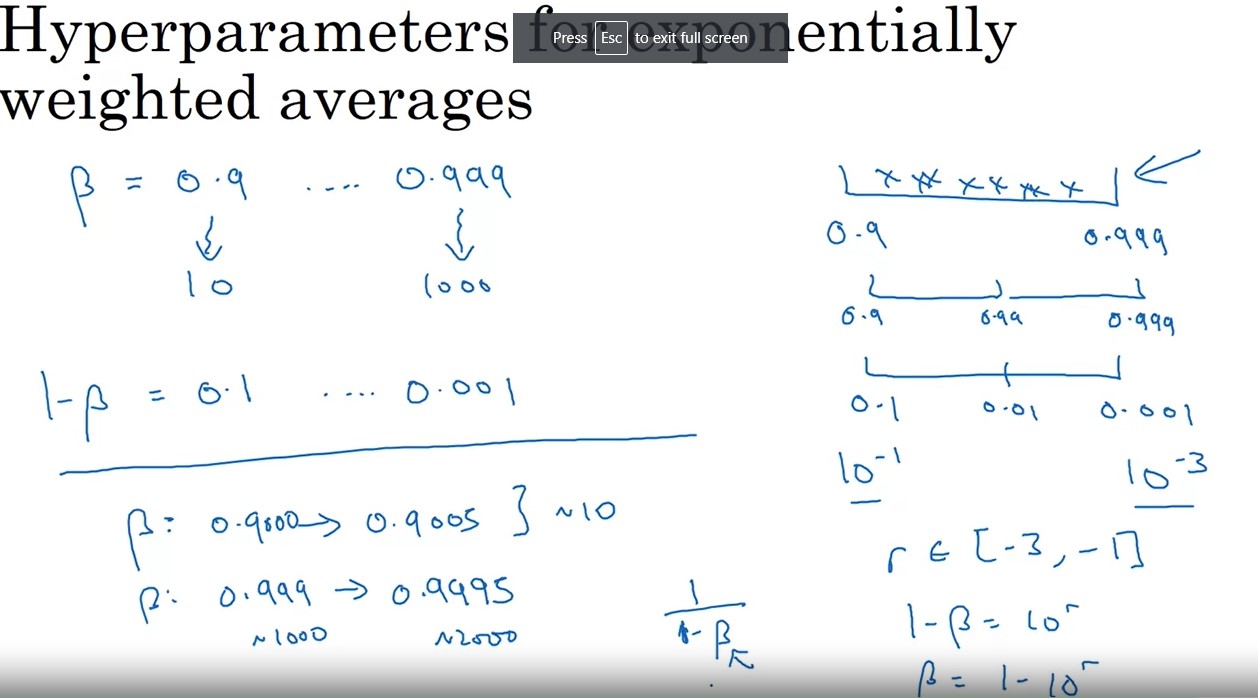 Hyperparameters for exponentially
weighted averages
Press Esc to exit full screen
β = 0.9 .... 0.999
10 1000
1-β = 0.1 .... 0.001
β: 0.9000 → 0.9005 } ~10
β: 0.999 → 0.9995
~1000 ~2000
1
1-β
0.9 0.999
0.9 0.99 0.999
0.1 0.01 0.001
10^-1 10^-3
r ∈ [-3, -1]
1-β = 10^r
β = 1-10^r